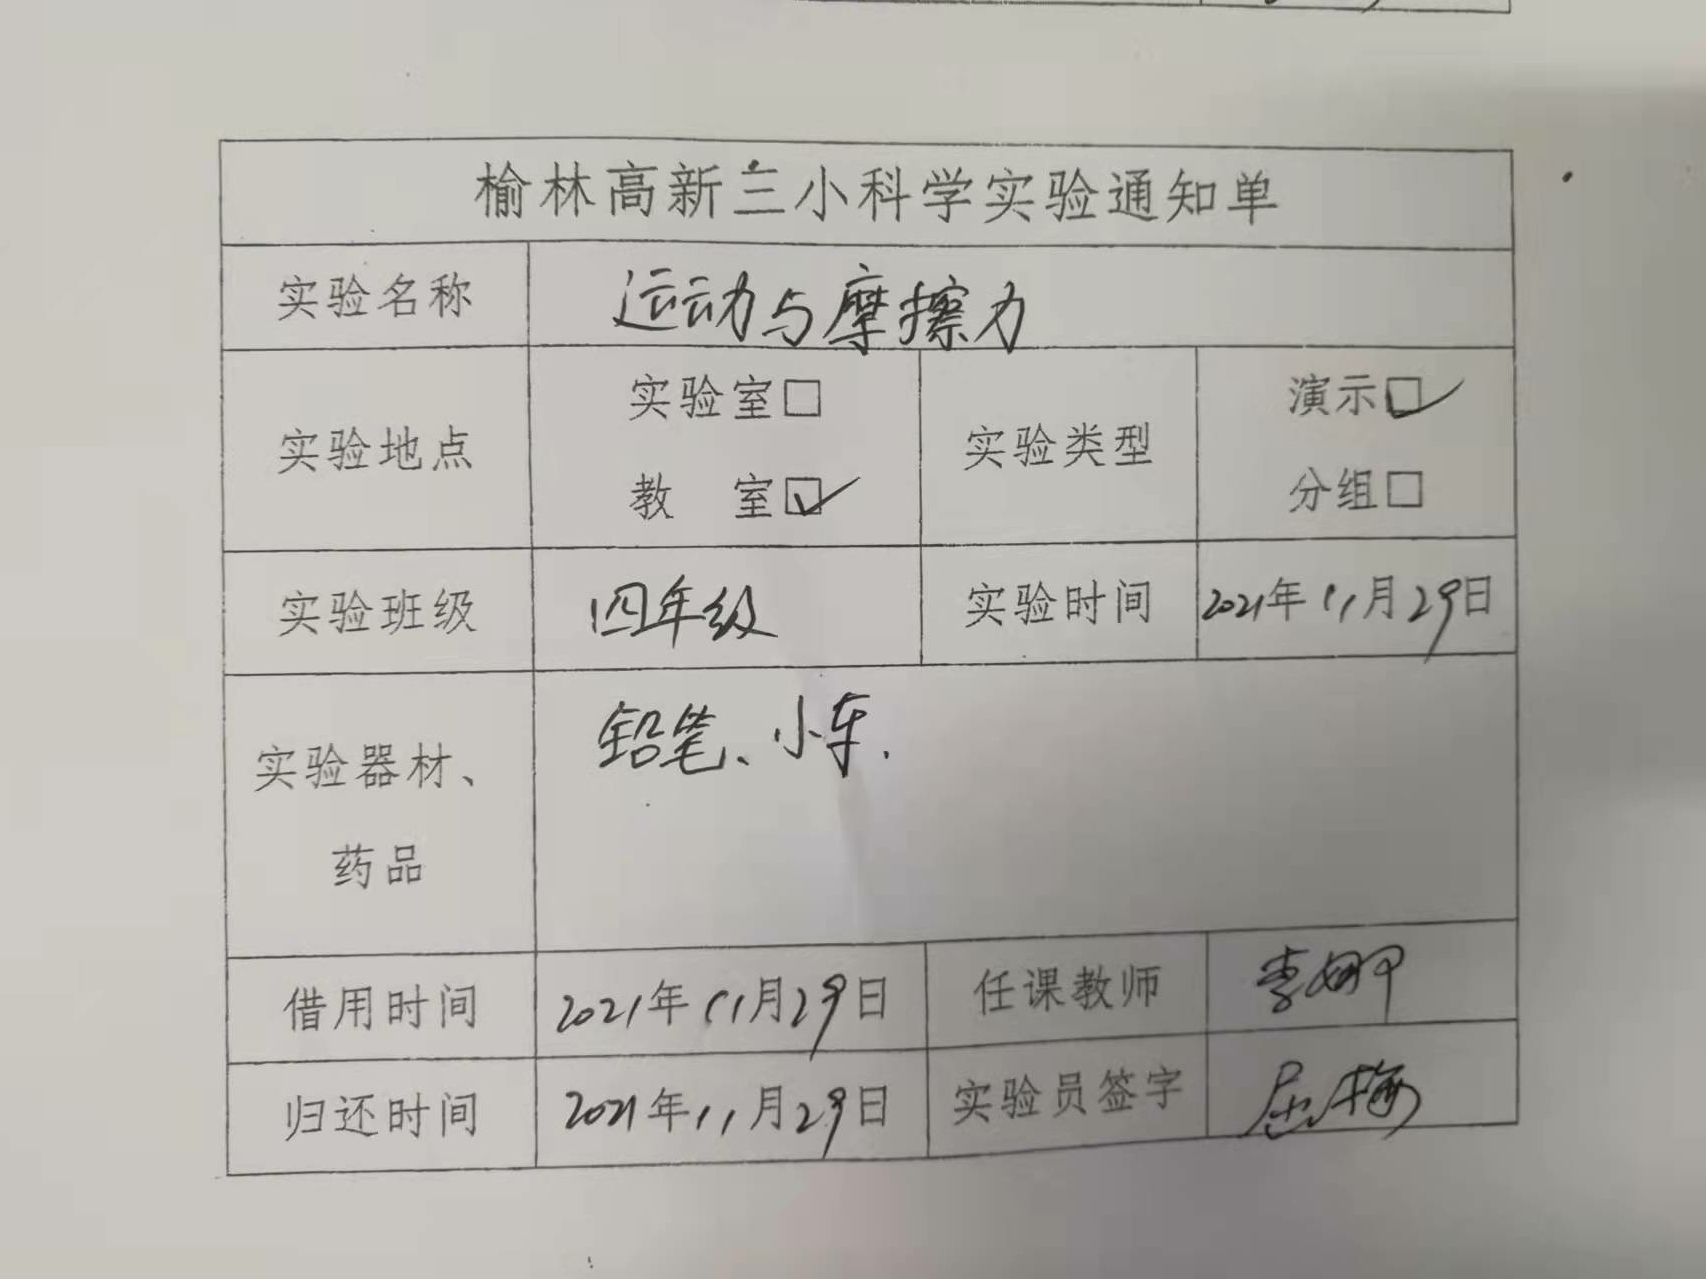 榆林高新三小科学实验通知单
实验名称 运动与摩擦力
实验地点 实验室□ 教 室☑ 实验类型 演示☑ 分组□
实验班级 四年级 实验时间 2021年11月29日
实验器材、药品 铅笔、小车.
借用时间 2021年11月29日 任课教师 李娜
归还时间 2021年11月29日 实验员签字 屈梅